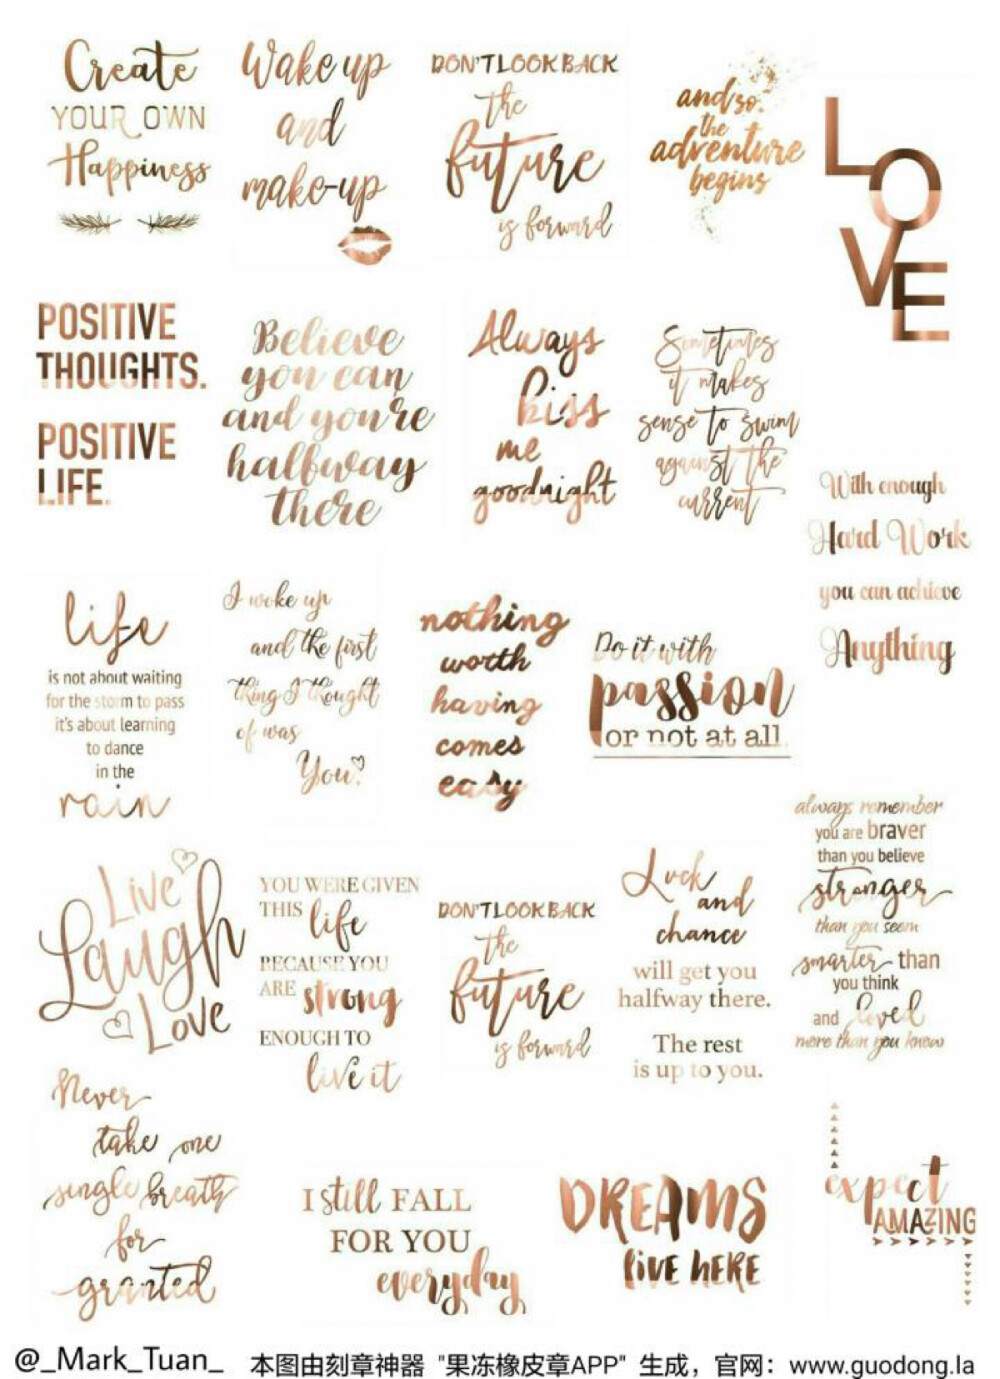 Create
YOUR OWN
Happiness
Wake up
and
make-up
DON'T LOOK BACK
the
future
is forward
and so
the
adventure
begins
L
O
V
E
POSITIVE
THOUGHTS.
POSITIVE
LIFE.
Believe
you can
and you're
halfway
there
Always
kiss
me
goodnight
Sometimes
it makes
sense to swim
against the
current
With enough
Hard Work
you can achieve
Anything
life
is not about waiting
for the storm to pass
it's about learning
to dance
in the
rain
I woke up
and the first
thing I thought
of was
You.
nothing
worth
having
comes
easy
Do it with
passion
or not at all.
always remember
you are braver
than you believe
stronger
than you seem
smarter than
you think
and loved
more than you know
Live
Laugh
Love
YOU WERE GIVEN
THIS life
BECAUSE YOU
ARE strong
ENOUGH TO
live it
DON'T LOOK BACK
the
future
is forward
Luck
and
chance
will get you
halfway there.
The rest
is up to you.
Never
take one
single breath
for
granted
I still FALL
FOR YOU
everyday
DREAMS
LIVE HERE
expect
AMAZING
@_Mark_Tuan_ 本图由刻章神器 "果冻橡皮章APP" 生成，官网：www.guodong.la